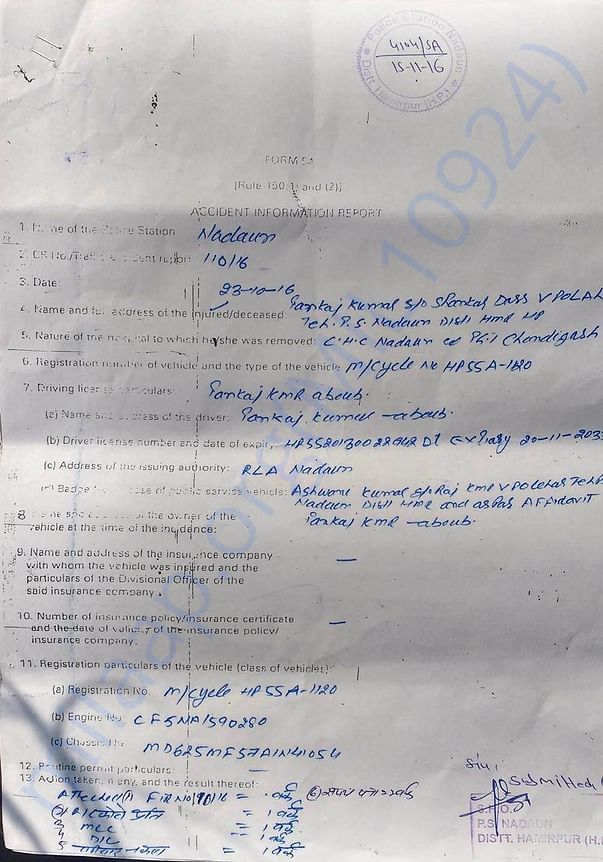 Police Station Nadaun
4104/5A
15-11-16
Distt. Hamirpur (H.P.)
FORM 54
[Rule 150(1) and (2)]
ACCIDENT INFORMATION REPORT
1. Name of the Police Station Nadaun
2. CR No./Traffic accident report 110/16
3. Date: 23-10-16
4. Name and full address of the injured/deceased: Pankaj Kumar S/o Shankar Dass V.PO
Teh. P.S. Nadaun Distt Hmr HP
5. Nature of the hospital to which he/she was removed: C.H.C Nadaun PGI Chandigarh
6. Registration number of vehicle and the type of the vehicle M/Cycle No HP55A-1120
7. Driving license particulars: Pankaj Kmr above.
(a) Name and address of the driver: Pankaj Kumar -above.
(b) Driver license number and date of expiry Dt Expiary 20-11-2033
(c) Address of the issuing authority: RLA Nadaun
Badge in case of public service vehicle: Ashwani Kumar S/o Raj Kmr VPO Teh
Nadaun Distt Hmr and as per Affidavit
8 of the owner of the Pankaj Kmr -above.
vehicle at the time of the incidence:
9. Name and address of the insurance company —
with whom the vehicle was insured and the
particulars of the Divisional Officer of the
said insurance company.
10. Number of insurance policy/insurance certificate —
and the date of validity of the insurance policy/
insurance company:
11. Registration particulars of the vehicle (class of vehicles):
(a) Registration No. M/Cycle HP55A-1120
(b) Engine No. CF5NA1590280
(c) Chassis No. MD625MF57A1N41054
12. Routine permit particulars: —
13. Action taken, if any, and the result thereof:
Attached (1) FIR No 110/16 =
MLC =
Submitted
S.H.O.
P.S. NADAUN
DISTT. HAMIRPUR (H.P.)
109241